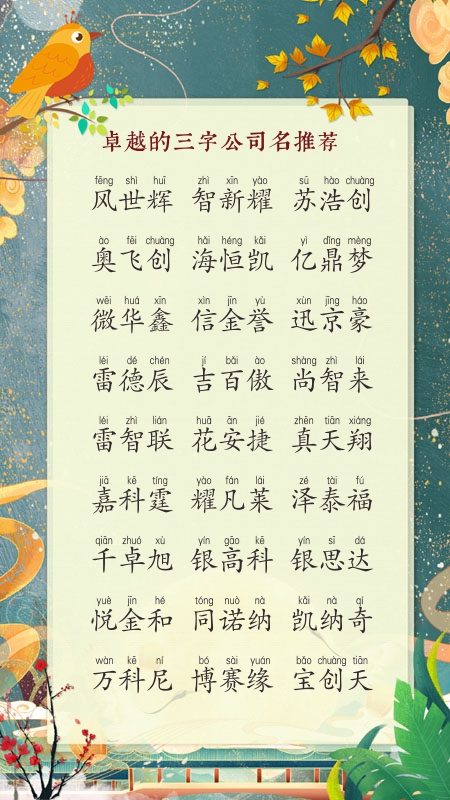 卓越的三字公司名推荐
fēng shì huī zhì xīn yào sū hào chuàng
风世辉 智新耀 苏浩创
ào fēi chuàng hǎi héng kǎi yì dǐng mèng
奥飞创 海恒凯 亿鼎梦
wēi huá xīn xìn jīn yù xùn jīng háo
微华鑫 信金誉 迅京豪
léi dé chén jí bǎi ào shàng zhì lái
雷德辰 吉百傲 尚智来
léi zhì lián huā ān jié zhēn tiān xiáng
雷智联 花安捷 真天翔
jiā kē tíng yào fán lái zé tài fú
嘉科霆 耀凡莱 泽泰福
qiān zhuó xù yín gāo kē yín sī dá
千卓旭 银高科 银思达
yuè jīn hé tóng nuò nà kǎi nà qí
悦金和 同诺纳 凯纳奇
wàn kē ní bó sài yuán bǎo chuàng tiān
万科尼 博赛缘 宝创天